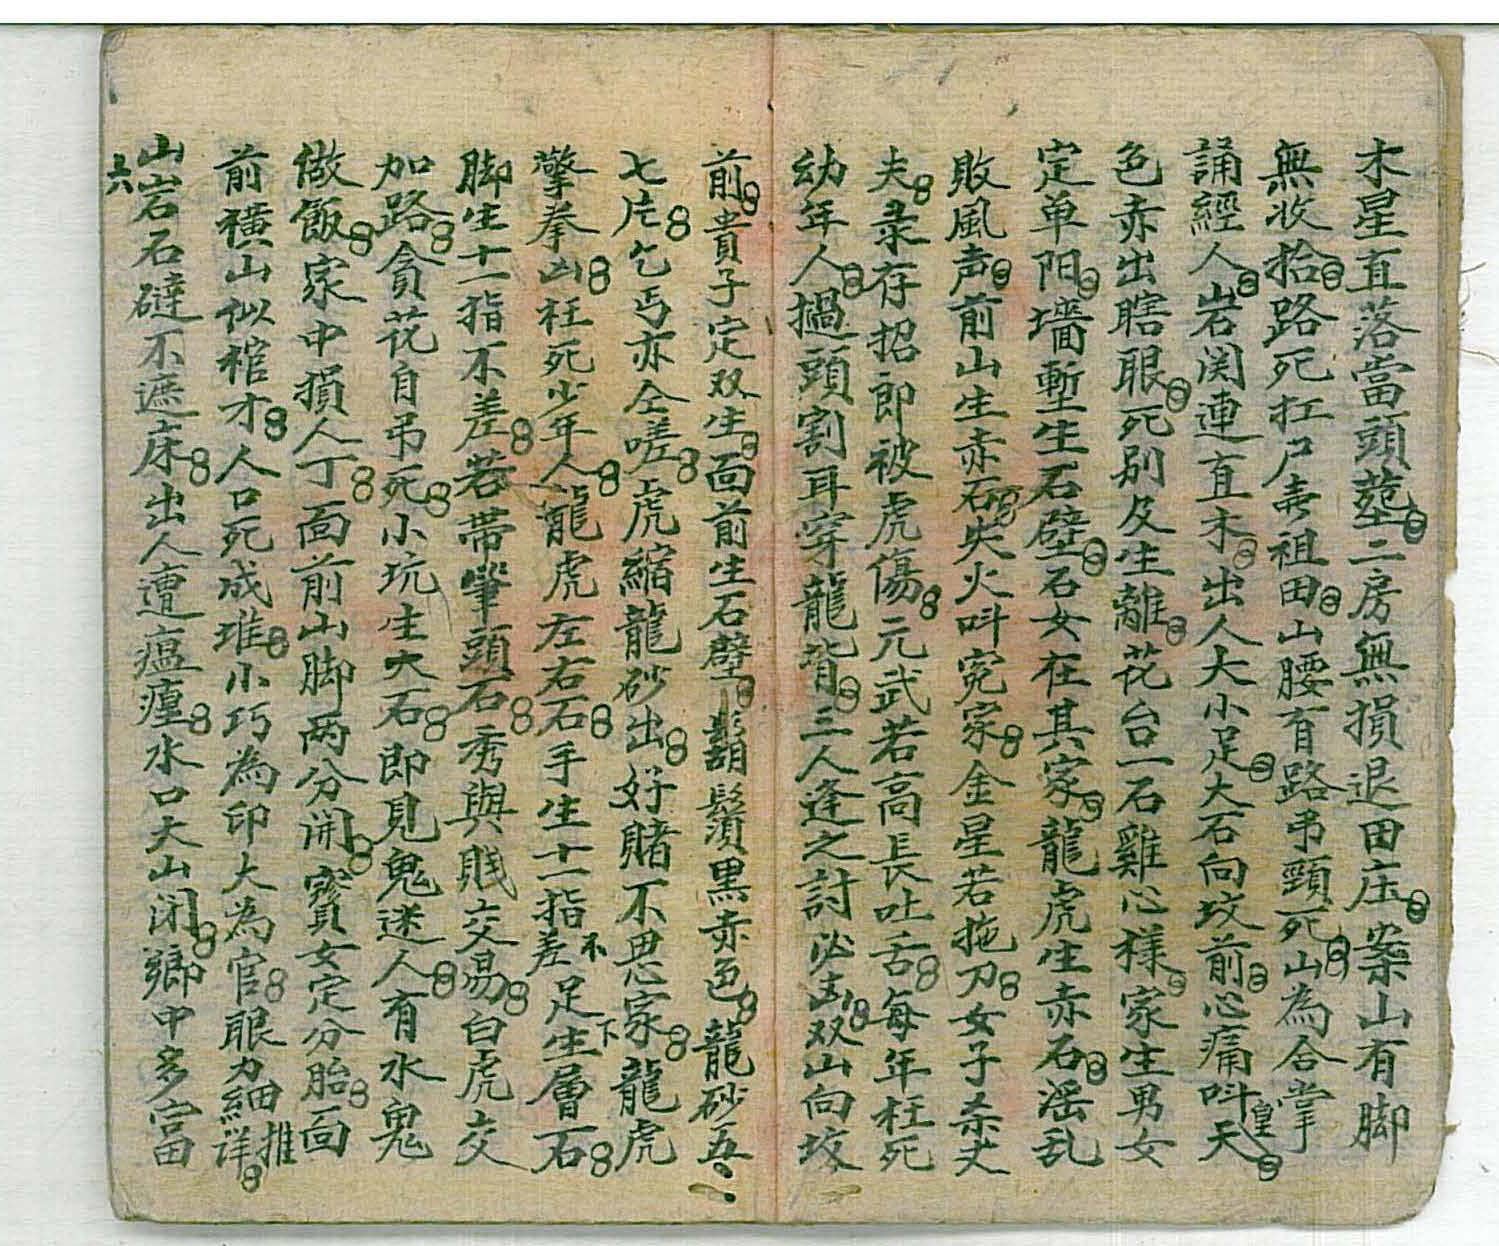 木星直落當頭塟二房無損退田庄案山有脚
無收拾路死扛尸夀祖田山腰有路吊頸死山為合掌
誦經人岩関連直木出人大小足大石向坟前心痛叫天皇
色赤出瞎眼死別及生離花台一石雞心樣家生男女
定单阳墻塹生石壁石女在其家龍虎生赤石滛乱
敗風声前山生赤石失火叫寃家金星若拖刀女子杀丈
夫彔存招即被虎傷元武若高長吐舌每年枉死
幼年人撾頭割耳穿龍背三人逢之討必凶双山向坟
前貴子定双生面前生石壁鬍鬚黒赤色龍砂五
七片乞丐亦仝嗟虎縮龍砂出好賭不思家龍虎
擎拳凶枉死少年人龍虎左右石手生十一指不差足下生層石
脚生十一指不差若带筆頭石秀與賎交易白虎交
加路貪花自吊死小坑生大石即見鬼迷人有水鬼
做飯家中損人丁面前山脚两分闲寳女定分胎面
前横山似棺才人口死成堆小巧為印大為官眼力細推詳
山岩石磋不遮床出人遭瘟㾮水口大山闭鄉中多富
六